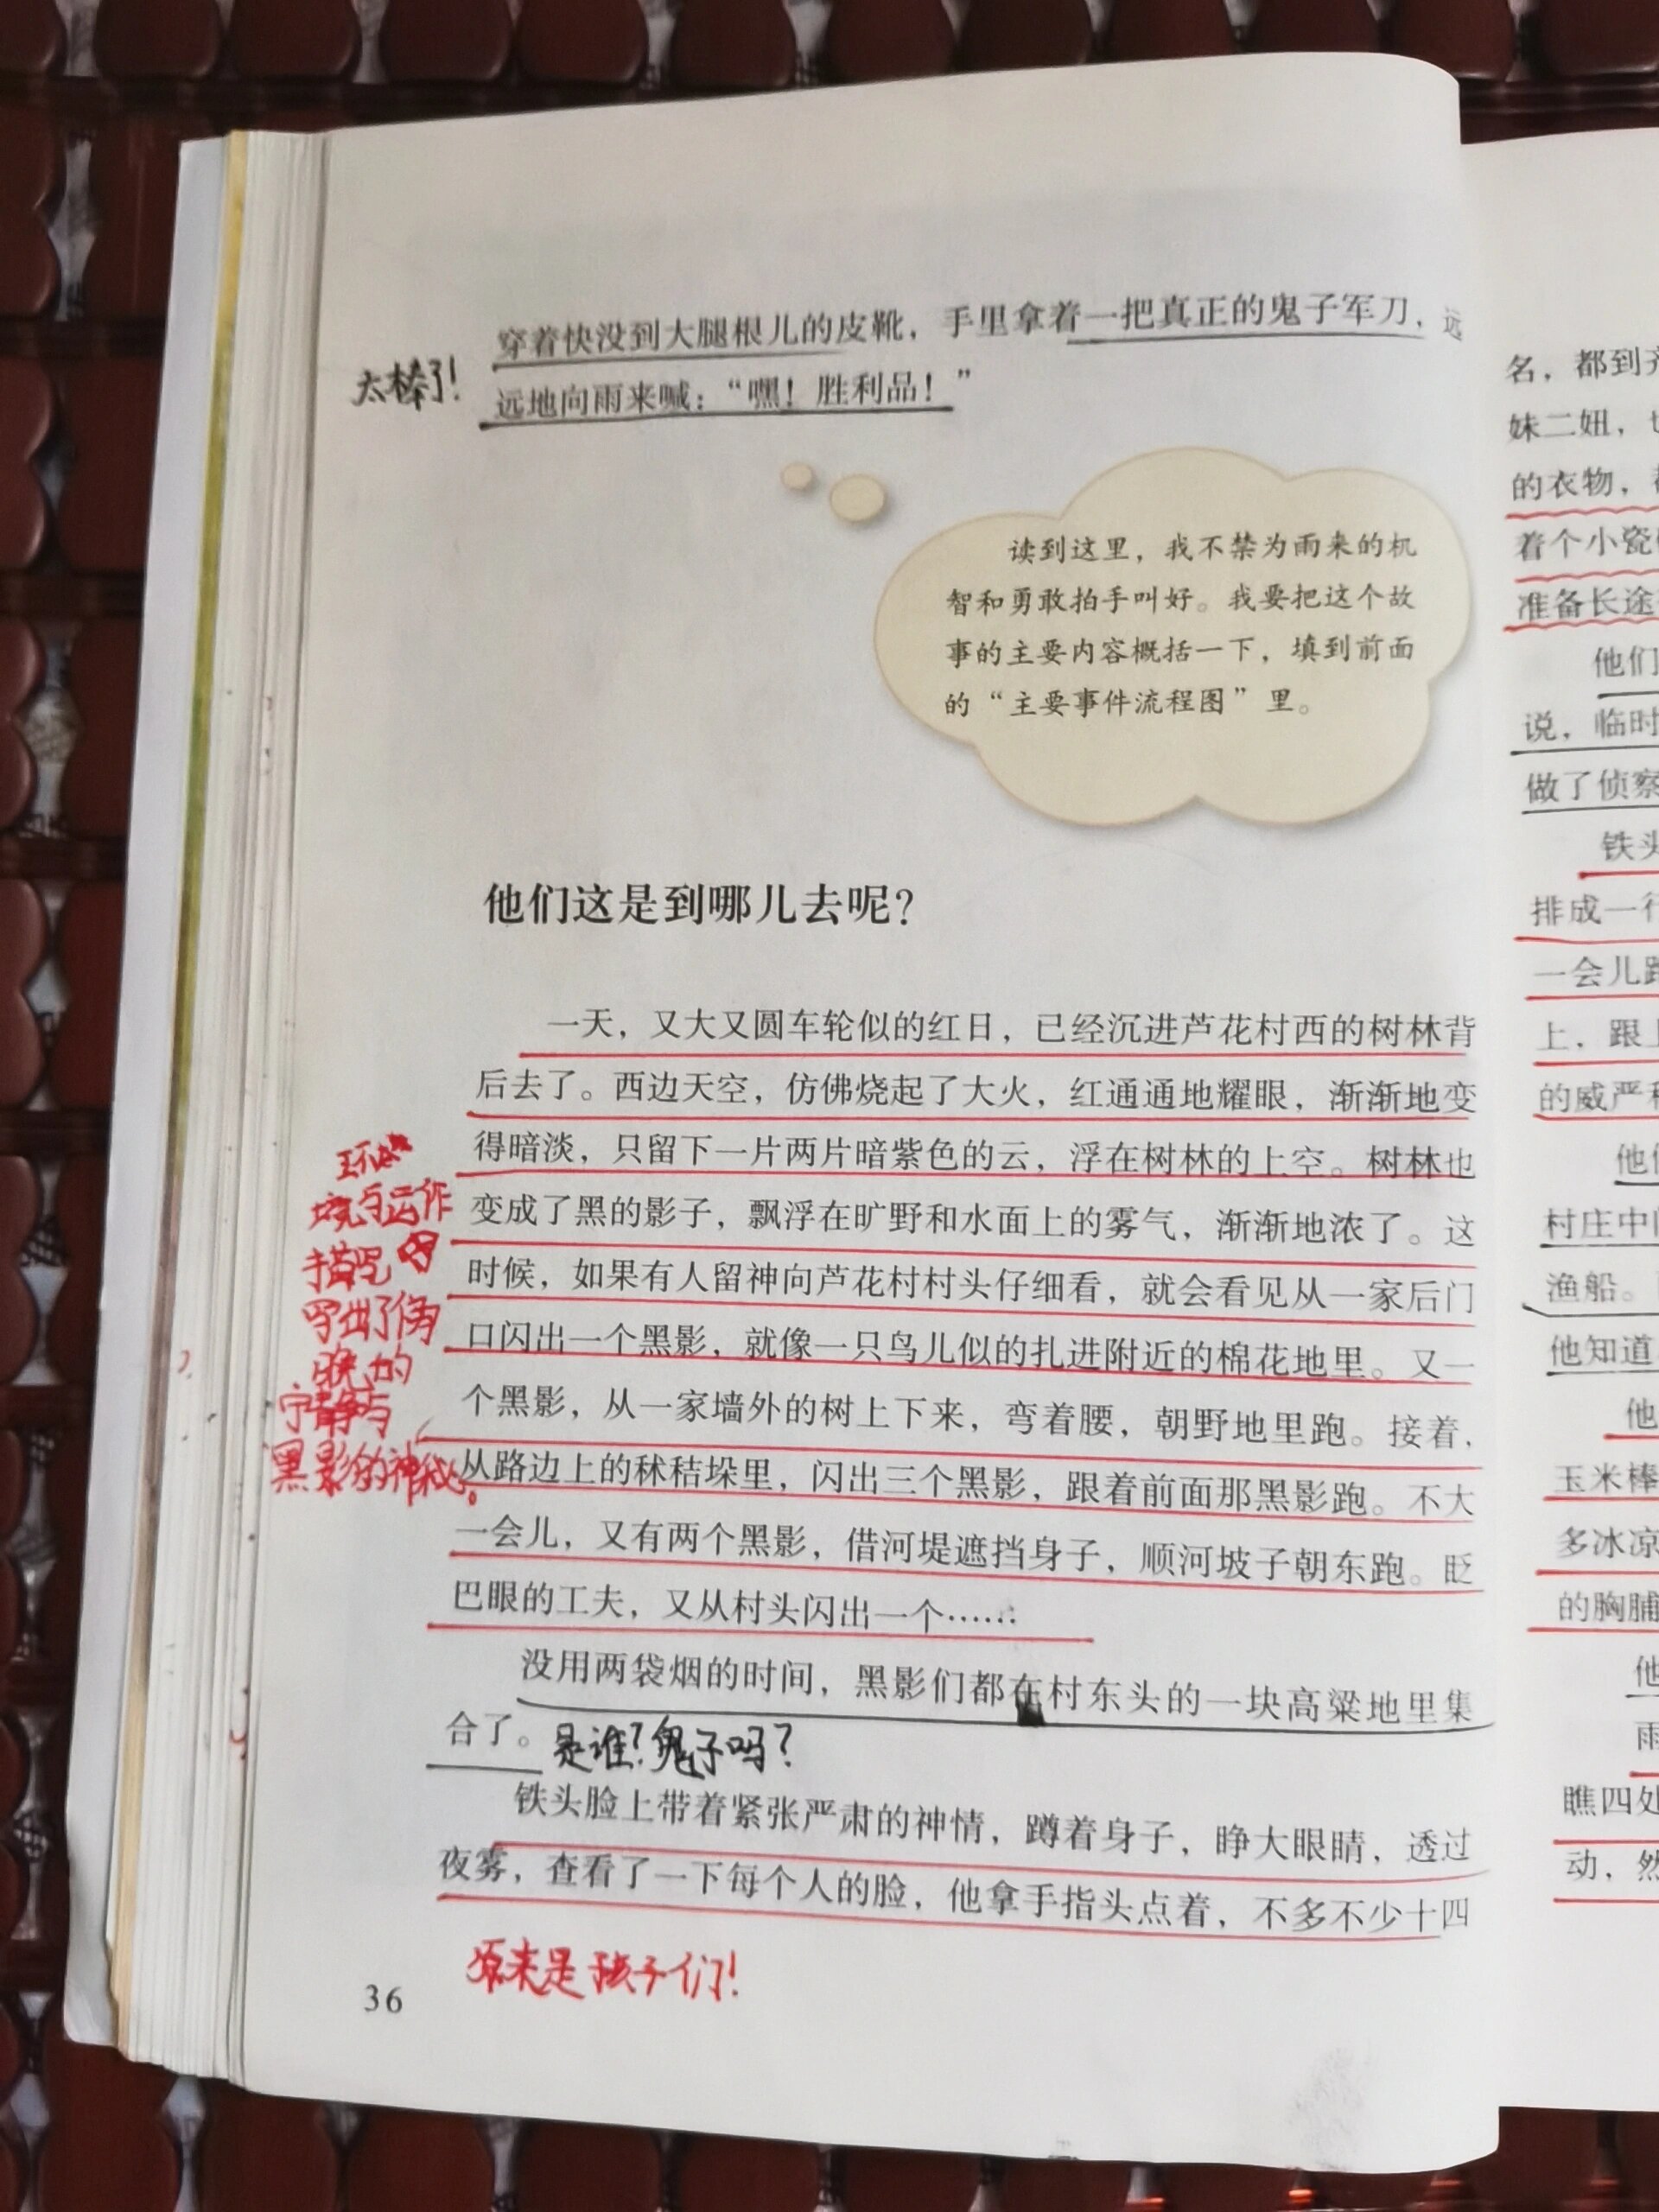 穿着快没到大腿根儿的皮靴，手里拿着一把真正的鬼子军刀，远
太棒了！
远地向雨来喊：“嘿！胜利品！”
读到这里，我不禁为雨来的机
智和勇敢拍手叫好。我要把这个故
事的主要内容概括一下，填到前面
的“主要事件流程图”里。
他们这是到哪儿去呢？
一天，又大又圆车轮似的红日，已经沉进芦花村西的树林背
后去了。西边天空，仿佛烧起了大火，红通通地耀眼，渐渐地变
得暗淡，只留下一片两片暗紫色的云，浮在树林的上空。树林也
变成了黑的影子，飘浮在旷野和水面上的雾气，渐渐地浓了。这
时候，如果有人留神向芦花村村头仔细看，就会看见从一家后门
口闪出一个黑影，就像一只鸟儿似的扎进附近的棉花地里。又一
个黑影，从一家墙外的树上下来，弯着腰，朝野地里跑。接着，
从路边上的秫秸垛里，闪出三个黑影，跟着前面那黑影跑。不大
一会儿，又有两个黑影，借河堤遮挡身子，顺河坡子朝东跑。眨
巴眼的工夫，又从村头闪出一个……
环
境与运作
描写
写出了傍
晚的
宁静与
黑影的神秘。
没用两袋烟的时间，黑影们都在村东头的一块高粱地里集
合了。
是谁？鬼子吗？
铁头脸上带着紧张严肃的神情，蹲着身子，睁大眼睛，透过
夜雾，查看了一下每个人的脸，他拿手指头点着，不多不少十四
原来是孩子们！
36
名，都到
妹二妞，
的衣物，
着个小瓷
准备长途
他们
说，临时
做了侦察
铁头
排成一行
一会儿跑
上，跟上
的威严
他们
村庄中间
渔船。
他知道
他
玉米棒
多冰凉
的胸脯
他
雨
瞧四处
动，然